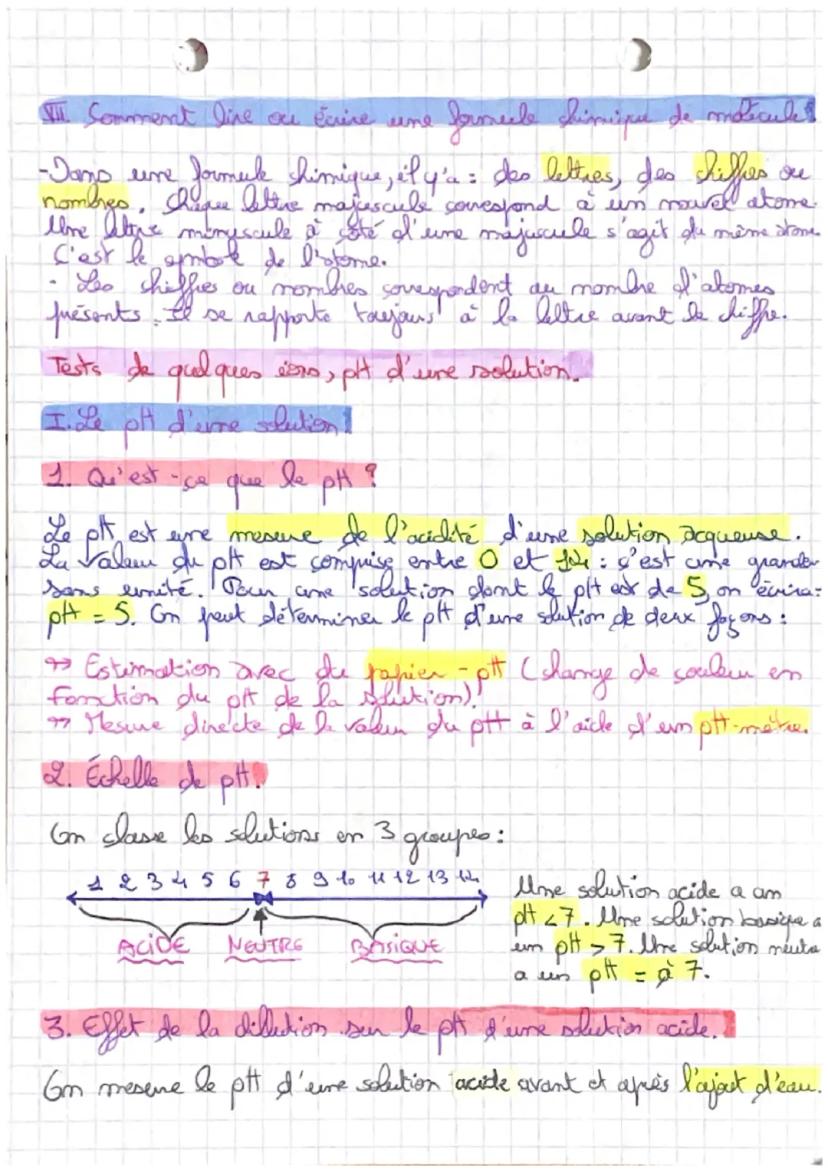 VII Comment lire ou écrire une formule chimique de molécule
-Dans une formule chimique, il y'a : des lettres, des chiffres ou
nombres. Chaque lettre majuscule correspond à un nouvel atome.
Une lettre minuscule à côté d'une majuscule s'agit du même atome.
C'est le symbole de l'atome.
- Les chiffres ou nombres correspondent au nombre d'atomes
présents. Il se rapporte toujours à la lettre avant le chiffre.
Tests de quelques ions, pH d'une solution.
I. Le pH d'une solution
1. Qu'est-ce que le pH ?
Le pH est une mesure de l'acidité d'une solution acqueuse.
La valeur du pH est comprise entre 0 et 14 : c'est une grandeur
sans unité. Pour une solution dont le pH est de 5, on écrira :
pH = 5. On peut déterminer le pH d'une solution de deux façons :
↔ Estimation avec du papier-pH (change de couleur en
fonction du pH de la solution).
↔ Mesure directe de la valeur du pH à l'aide d'un pH-mètre.
2. Échelle de pH.
On classe les solutions en 3 groupes :
1 2 3 4 5 6 7 8 9 10 11 12 13 14
ACIDE NEUTRE BASIQUE
Une solution acide a un
pH < 7. Une solution basique a
un pH > 7. Une solution neutre
a un pH = à 7.
3. Effet de la dillution sur le pH d'une solution acide.
On mesure le pH d'une solution acide avant et après l'ajout d'eau.